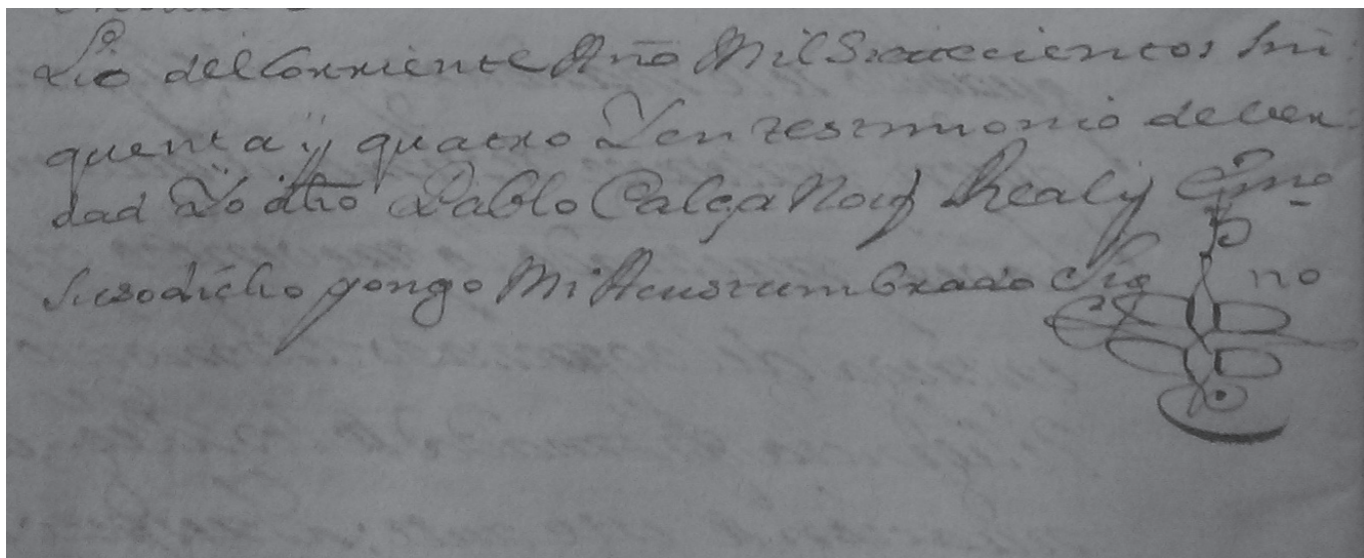 Lio del Corriente Año Mil Setecientos Sin
quenta y quatro Y en testimonio de ver
dad Yo dho Pablo Real y
Susodicho pongo Mi Acustumbrado Sig no